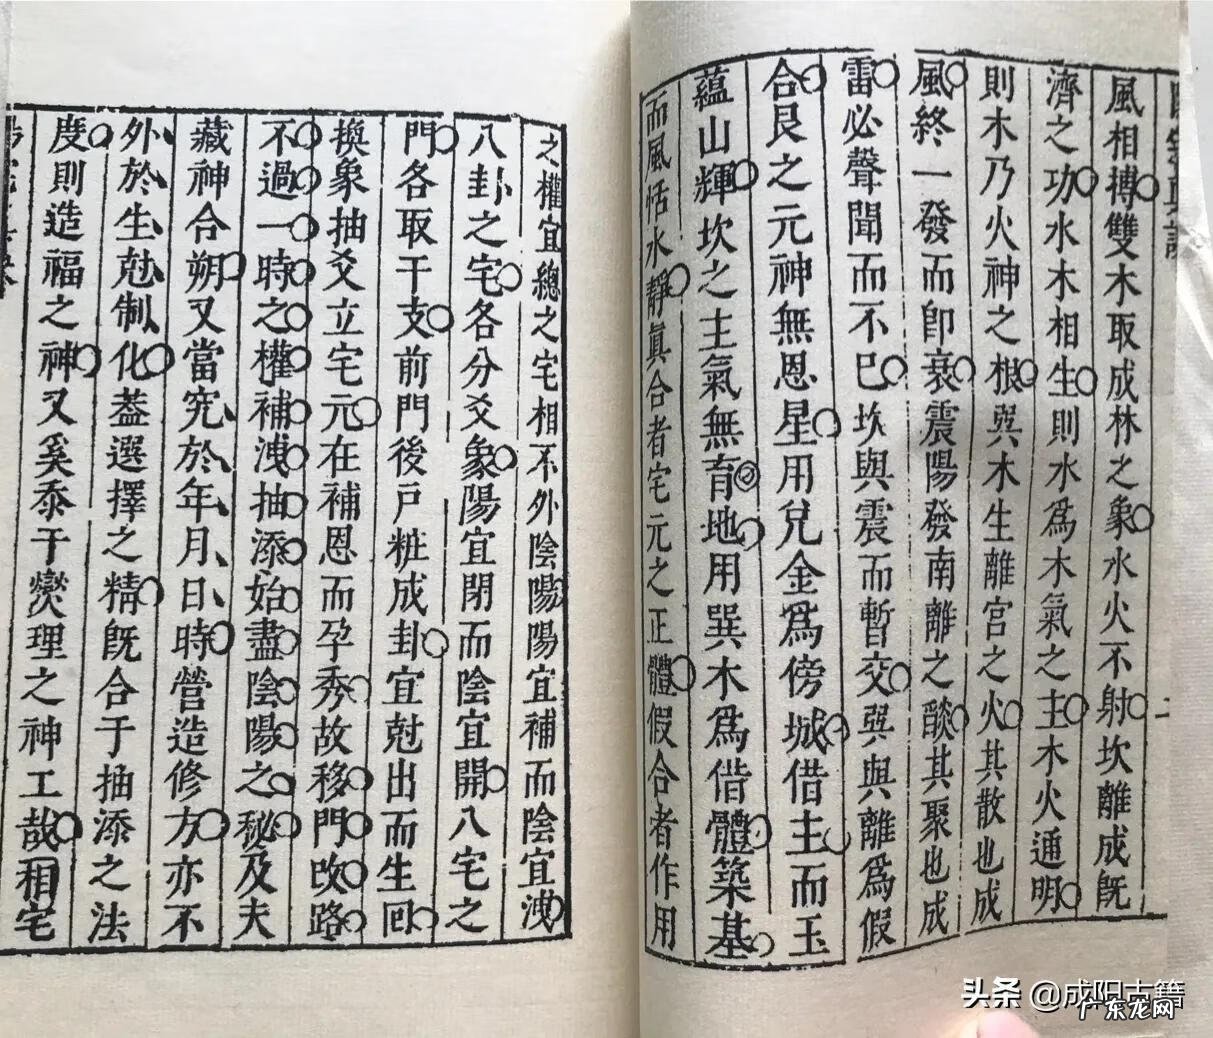 風相搏雙木取成林之象水火不射坎離成旣
濟之功水木相生則水爲木氣之主木火通明
則木乃火神之根巽木生離宮之火其散也成
風終一發而卽衰震陽發南離之燄其聚也成
雷必聲聞而不巳坎與震而暫交巽與離爲假
合艮之元神無恩星用兌金爲傍城借主而玉
蘊山輝坎之主氣無育地用巽木爲偕體築基
而風恬水靜眞合者宅元之正體假合者作用
之權宜總之宅相不外陰陽陽宜補而陰宜洩
八卦之宅各分爻象陽宜閉而陰宜開八宅之
門各取干支前門後戸粧成卦宜尅出而生囘
換象抽爻立宅元在補恩而孕秀故移門改路
不過一時之權補洩抽添始盡陰陽之秘及夫
藏神合朔又當究於年月日時營造修方亦不
外於生尅制化葢選擇之精旣合于抽添之法
度則造福之神又奚忝于燮理之神工哉相宅
头条 @成阳古籍
广东龙网